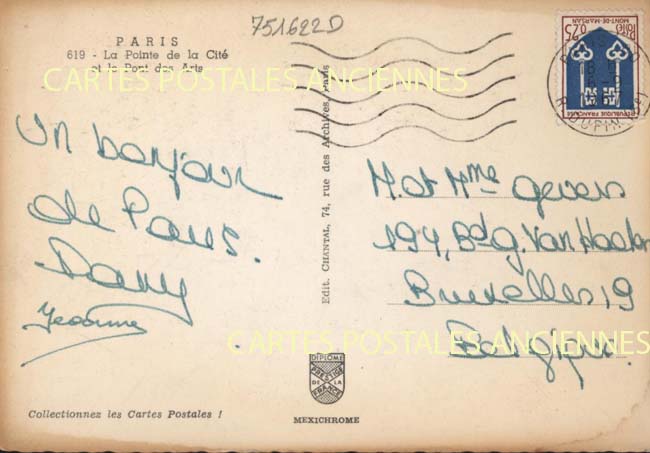 751622D
PARIS
619 - La Pointe de la Cité
et le Pont des Arts
CARTES POSTALES ANCIENNES
Un bonjour
de Paris.
Dany
Jeanne
Edit. CHANTAL, 74, rue des Archives, Paris
0,25
POSTES
MONT-DE-MARSAN
REPUBLIQUE FRANÇAISE
M. et Mme Gevers
194, Bdg. Van Haelen
Bruxelles 19
Belgique.
CARTES POSTALES ANCIENNES
DIPLOME
PRESTIGE
DE LA
FRANCE
Collectionnez les Cartes Postales !
MEXICHROME